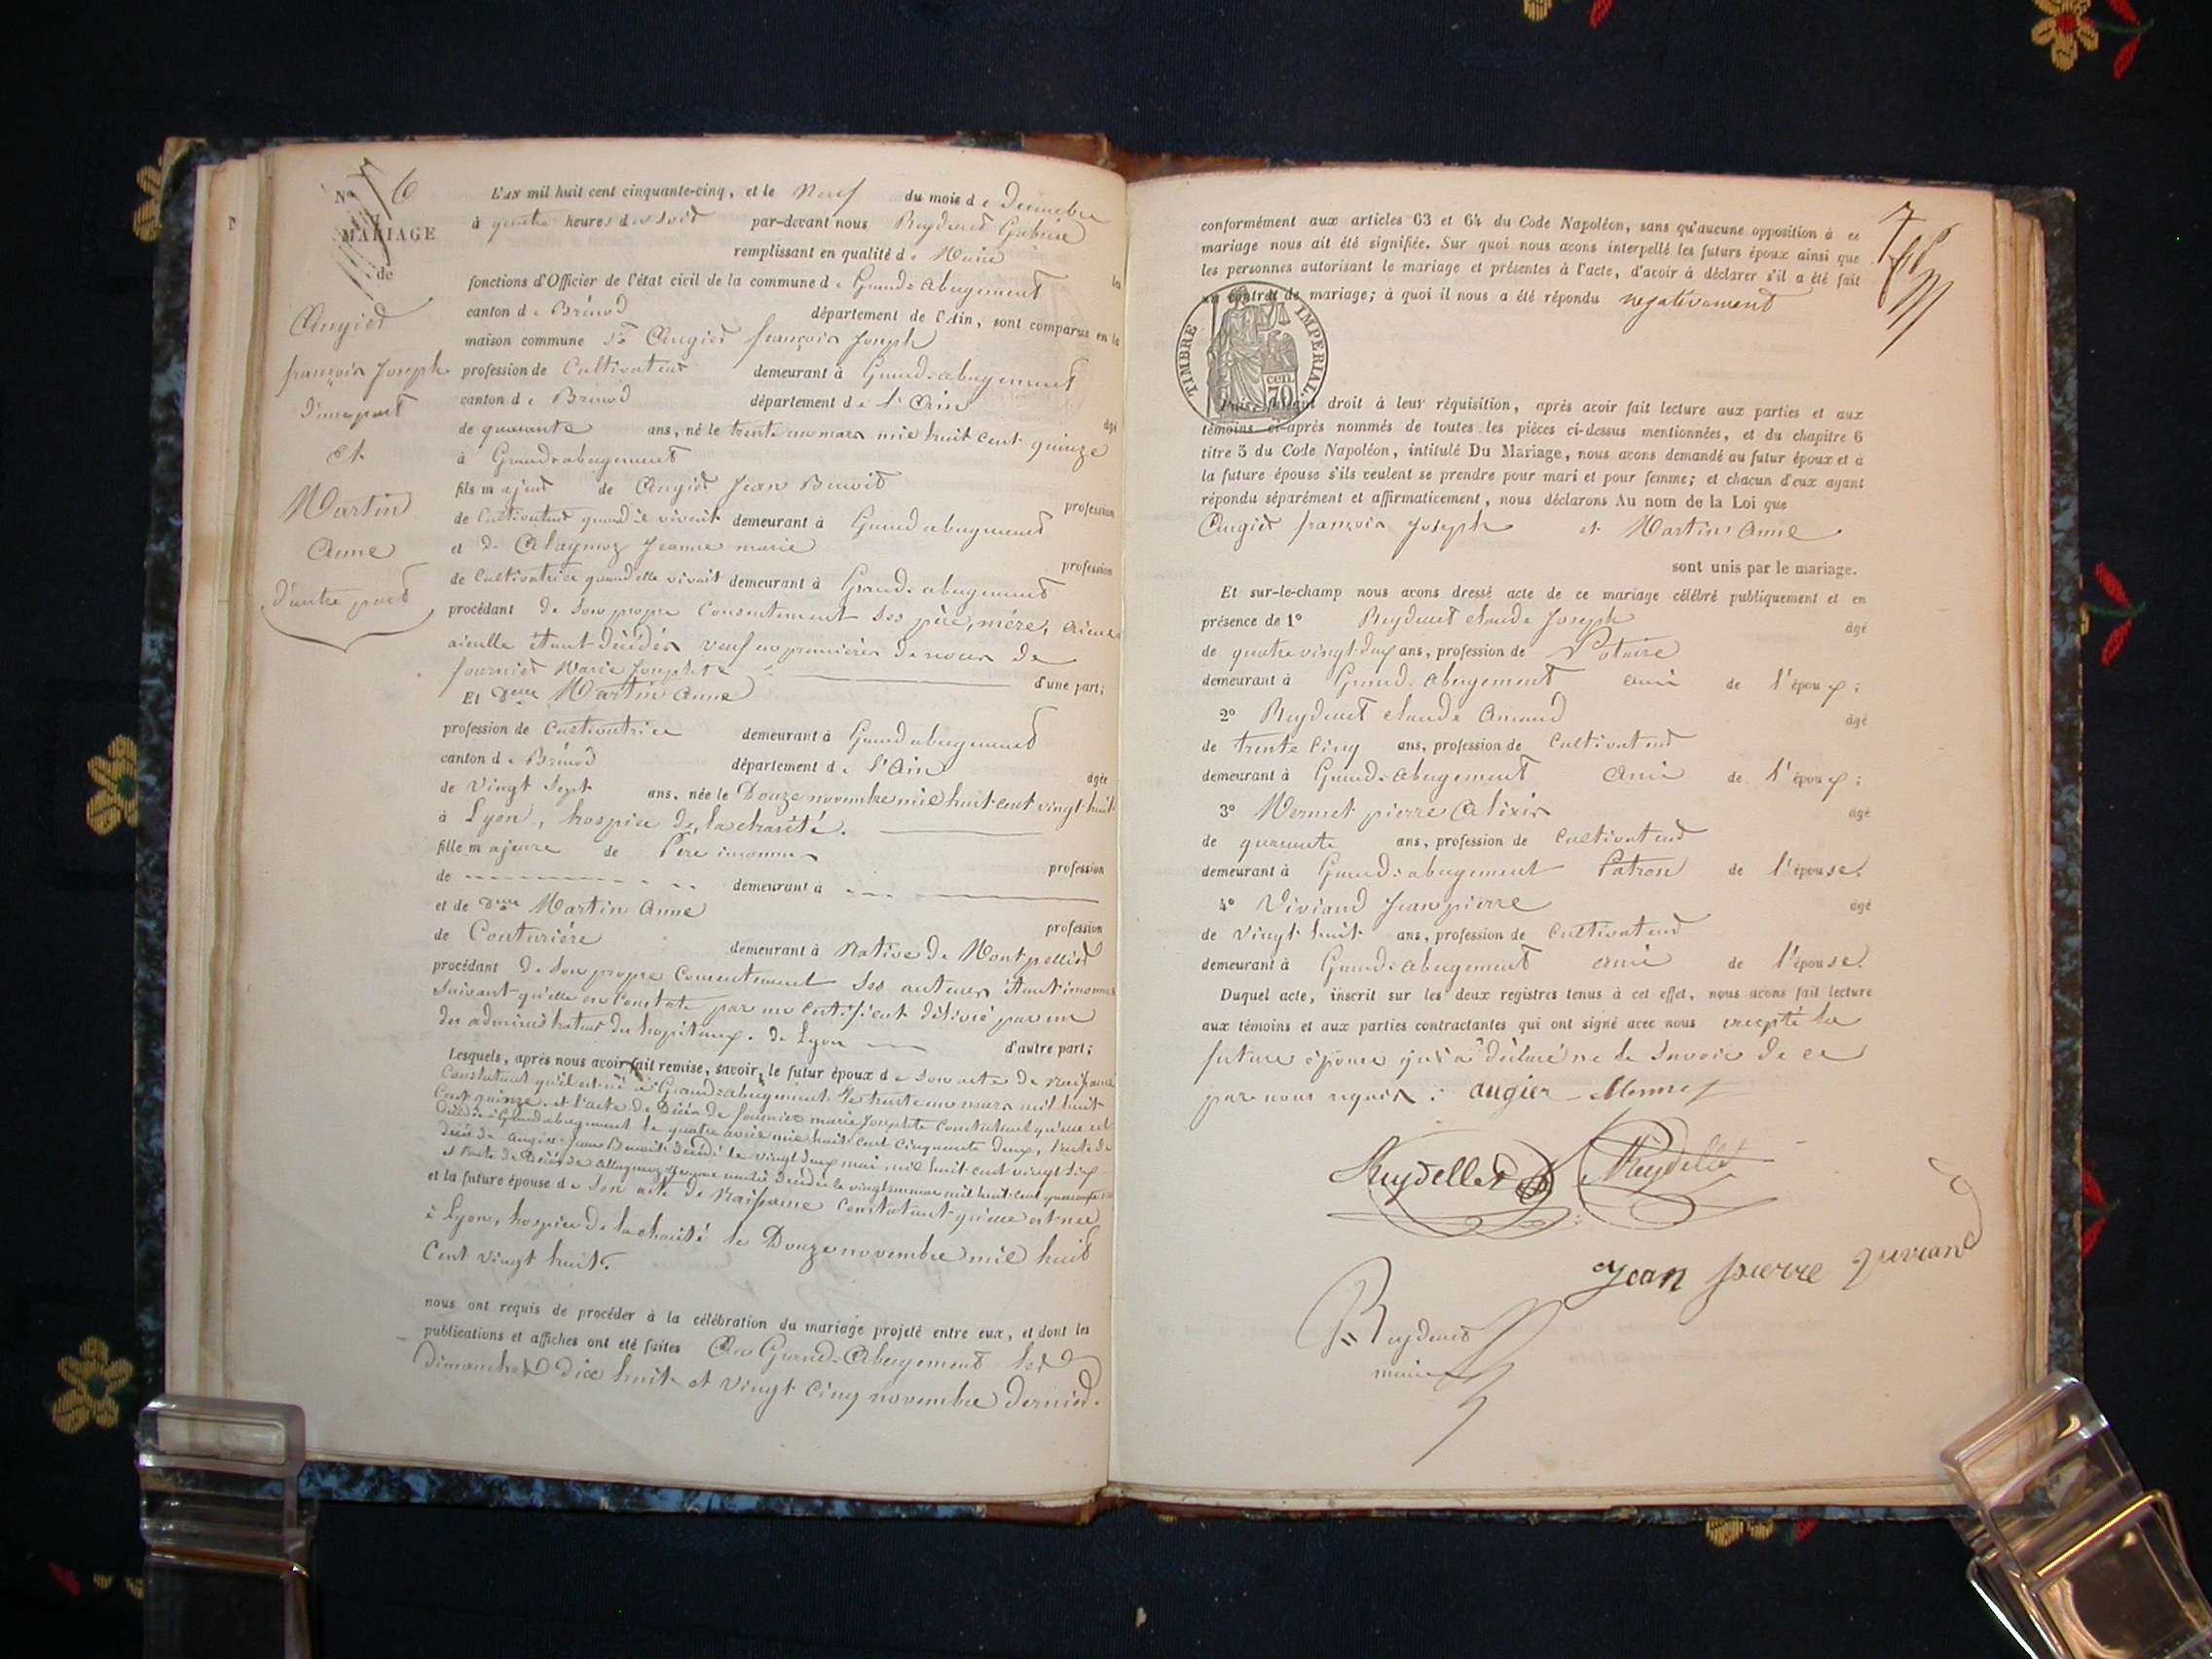 N° 6
MARIAGE
de
Augier
françois Joseph
d'une part
et
Martin
Anne
d'autre part
L'AN mil huit cent cinquante-cinq, et le Neuf du mois de Décembre
à quatre heures du soir par-devant nous Reydellet Gabriel
remplissant en qualité de Maire les
fonctions d'Officier de l'état civil de la commune de Grand-abergement
canton de Brénod département de l'Ain, sont comparus en la
maison commune Sr Augier françois Joseph
profession de Cultivateur demeurant à Grand-abergement
canton de Brénod département de l'Ain âgé
de quarante ans, né le trente un mars mil huit cent quinze
à Grand-abergement
fils majeur de Augier Jean Benoit profession
de Cultivateur quand il vivait demeurant à Grand abergement
et de Alaymoz Jeanne marie profession
de Cultivatrice quand elle vivait demeurant à Grand-abergement
procédant de son propre Consentement ses père, mère, aieul
aieulle étant décédés veuf en premières de nous de
fournier Marie Josephte d'une part;
Et Dlle Martin Anne
profession de Cultivatrice demeurant à Grand abergement
canton de Brénod département de l'Ain âgée
de Vingt Sept ans, née le Douze novembre mil huit cent vingt huit
à Lyon, hospice de la charité.
fille majeure de Père inconnu profession
de demeurant à
et de Dlle Martin Anne profession
de Couturière demeurant à Native de Montpellier
procédant de son propre Consentement Ses auteurs étant inconnus
Suivant qu'elle en Constate par un Certificat délivré par un
des administrateurs des hopitaux de Lyon d'autre part;
Lesquels, après nous avoir fait remise, savoir, le futur époux de son acte de naissance
Constatant qu'il est né à Grand-abergement le trente un mars mil huit
Cent quinze. et l'acte de Décès de fournier marie Josephte Constatant qu'elle est
décédée à Grand abergement le quatre avril mil huit cent cinquante deux, l'acte de
décès de augier Jean Benoit décédé le vingt deux mai mil huit cent vingt six
et l'acte de Décès de Allaymoz Jeanne marie décédée le mil huit cent quarante
et la future épouse de Son acte de Naissance Constatant qu'elle est née
à Lyon, hospice de la charité le Douze novembre mil huit
Cent vingt huit.
nous ont requis de procéder à la célébration du mariage projeté entre eux, et dont les
publications et affiches ont été faites Au Grand-Abergement les
Dimanches Dix huit et vingt cinq novembre dernier.
conformément aux articles 63 et 64 du Code Napoléon, sans qu'aucune opposition à ce
mariage nous ait été signifiée. Sur quoi nous avons interpellé les futurs époux ainsi que
les personnes autorisant le mariage et présentes à l'acte, d'avoir à déclarer s'il a été fait
un contrat de mariage; à quoi il nous a été répondu negativement
TIMBRE IMPERIAL
70 cen.
Puis, faisant droit à leur réquisition, après avoir fait lecture aux parties et aux
témoins ci-après nommés de toutes les pièces ci-dessus mentionnées, et du chapitre 6
titre 5 du Code Napoléon, intitulé Du Mariage, nous avons demandé au futur époux et à
la future épouse s'ils veulent se prendre pour mari et pour femme; et chacun d'eux ayant
répondu séparément et affirmativement, nous déclarons Au nom de la Loi que
Augier françois Joseph et Martin Anne
sont unis par le mariage.
Et sur-le-champ nous avons dressé acte de ce mariage célébré publiquement et en
présence de 1° Reydellet claude Joseph âgé
de quatre vingt-deux ans, profession de Notaire
demeurant à Grand-abergement ami de l'époux;
2° Reydellet claude Amand âgé
de trente Cinq ans, profession de Cultivateur
demeurant à Grand-abergement ami de l'époux;
3° Mermet pierre Alixis âgé
de quarante ans, profession de Cultivateur
demeurant à Grand-abergement Patron de l'épouse.
4° Viviand Jean pierre âgé
de vingt huit ans, profession de Cultivateur
demeurant à Grand-abergement ami de l'épouse.
Duquel acte, inscrit sur les deux registres tenus à cet effet, nous avons fait lecture
aux témoins et aux parties contractantes qui ont signé avec nous excepté la
future épouse qui a déclaré ne le Savoir de ce
par nous requis. augier Mermet
Reydellet Reydellet
Jean pierre viviand
Reydellet
maire